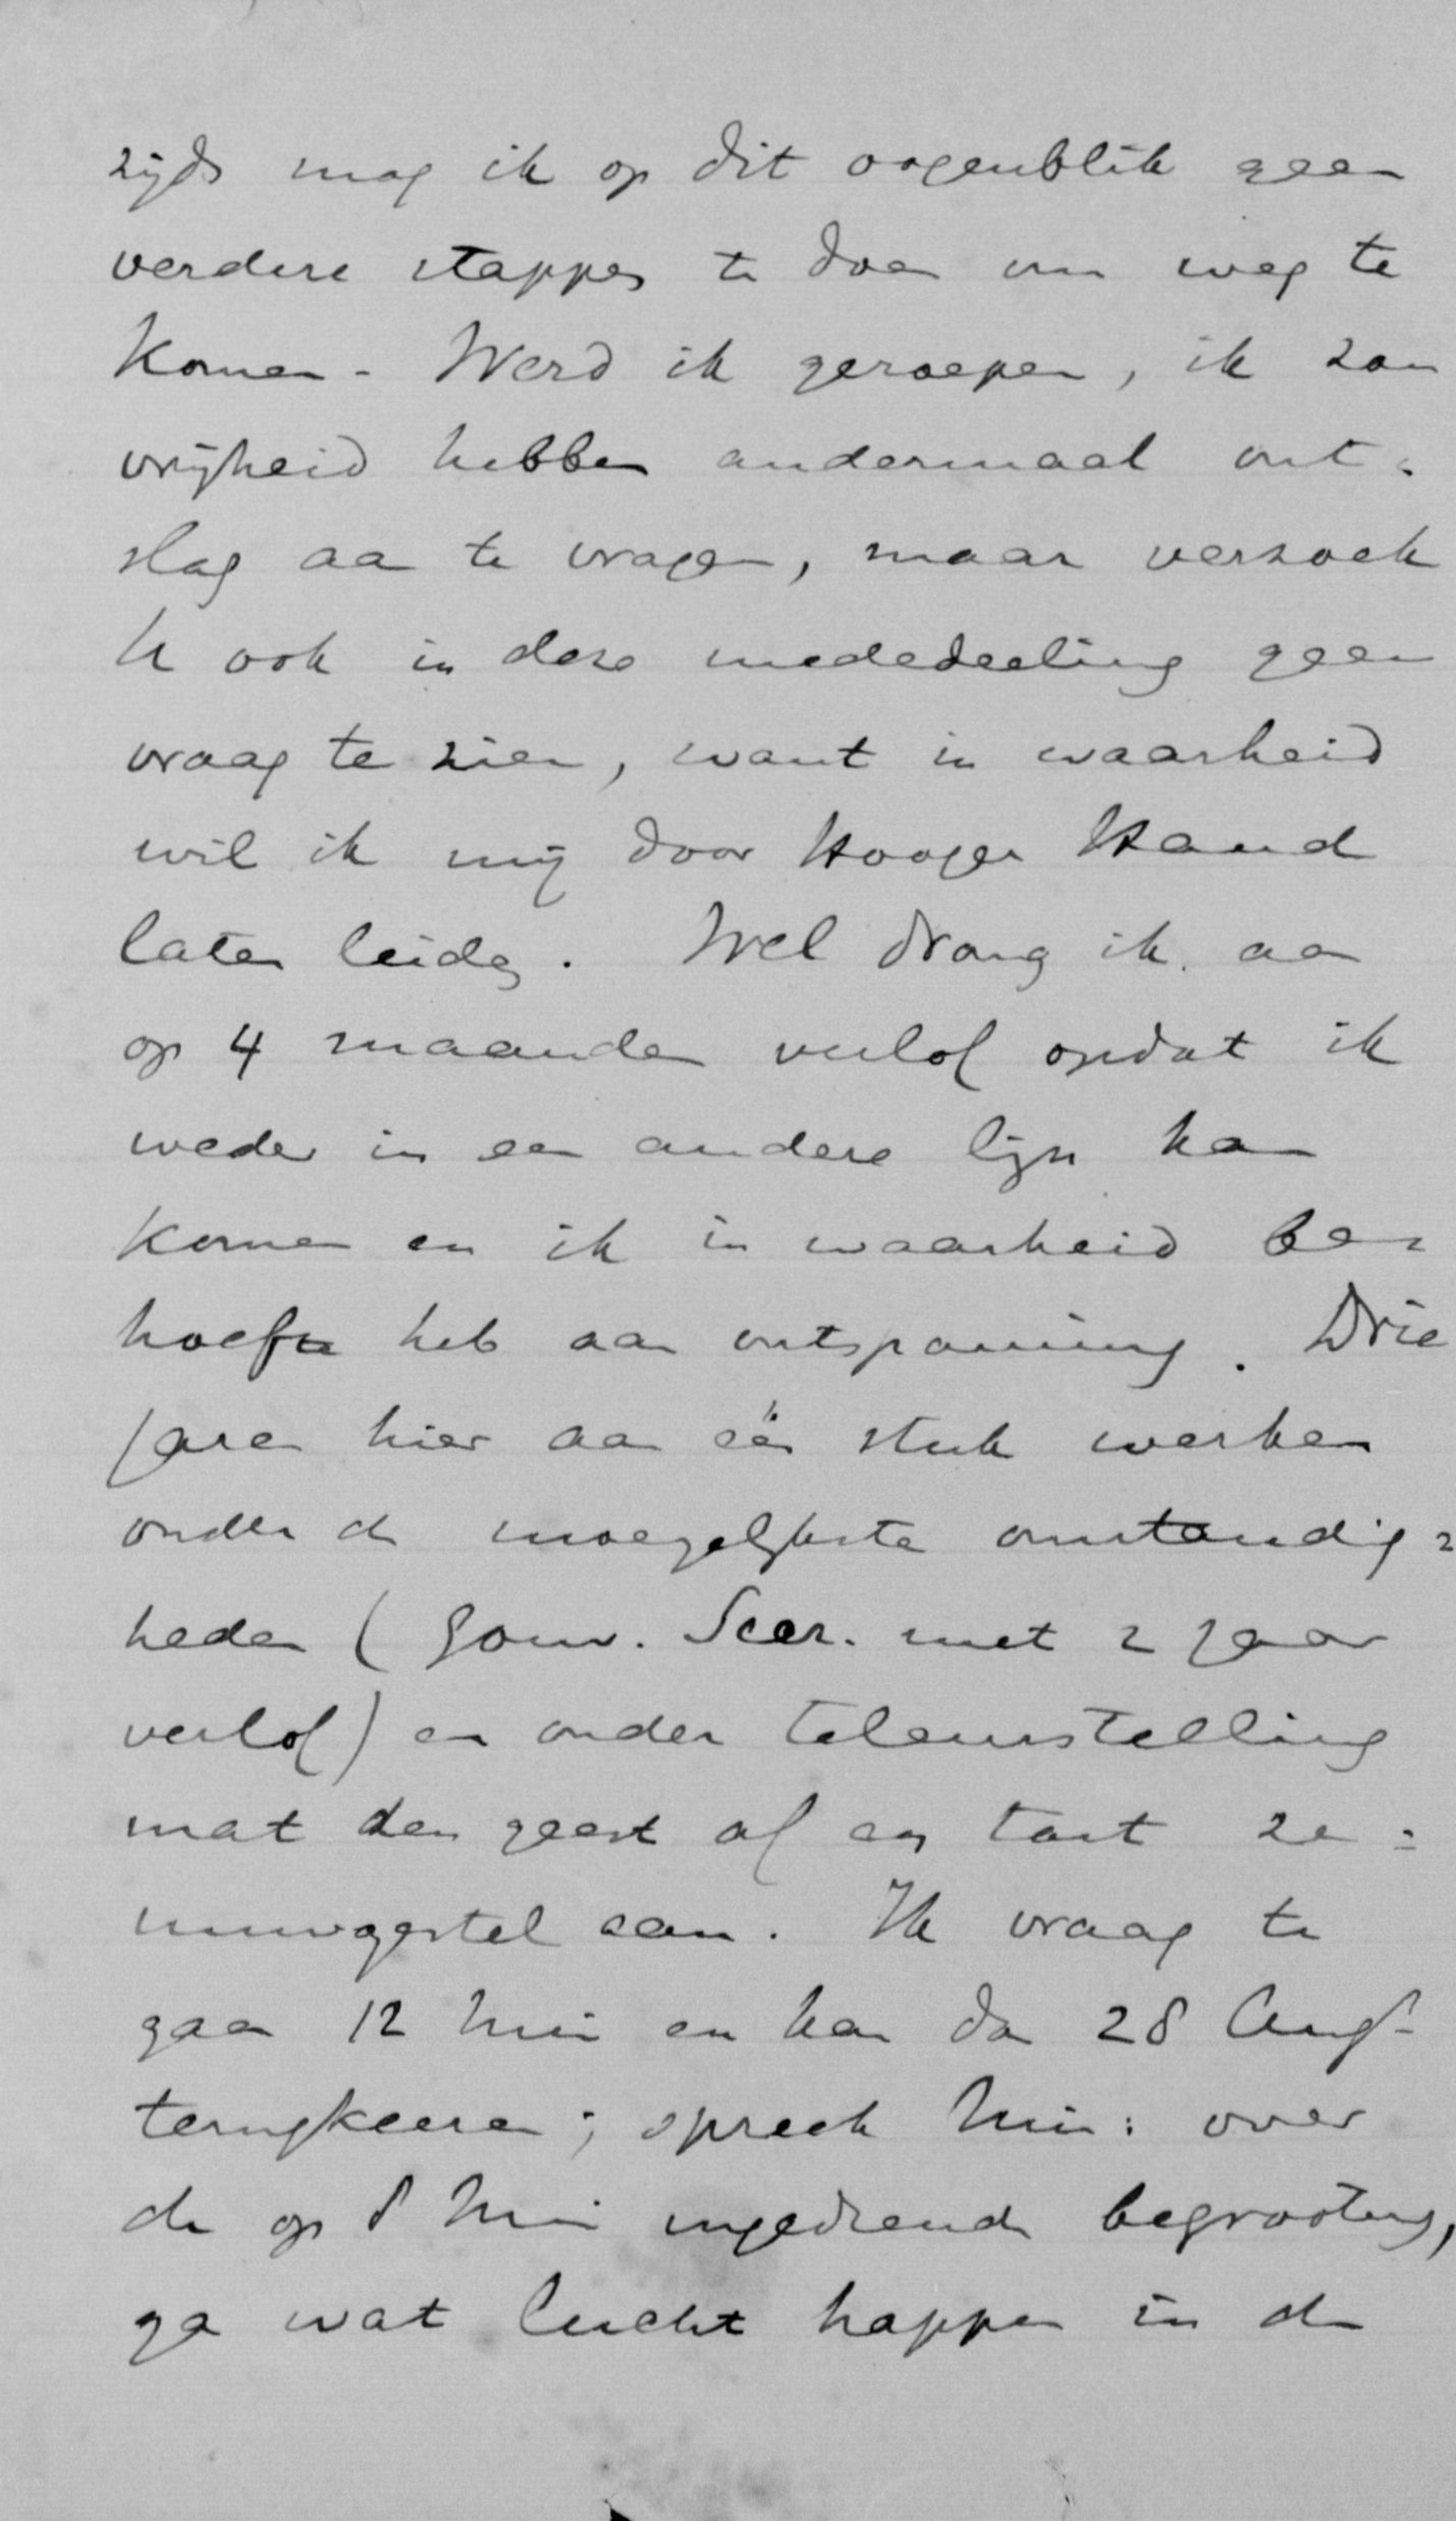 zijds mag ik op dit oogenblik geen
verdere stappen te doen om weg te
komen - Werd ik geroepen, ik zou
vrijheid hebben andermaal ont-
slag aan te vragen, maar verzoek
U ook in deze mededeeling geen
vraag te zien, want in waarheid
wil ik mij door Hooger Hand
laten leiden. Wel drong ik aan
op 4 maanden verlof opdat ik
weder in een andere lijn kan
komen en ik in waarheid be-
hoefte heb aan ontspanning. Drie
jaren hier aan één stuk werken
onder de moeyelijkste omstandig-
heden (Gouv. Secr. met 2 jaar
verlof) en onder teleurstelling
mat den geest af en tast ze-
nuwgestel aan. Ik vraag te
gaan 12 Mei en kan dan 28 Aug-
terugkeeren; spreek Min: over
de op 8 Mei ingediende begrooting,
ga wat lucht happen in de